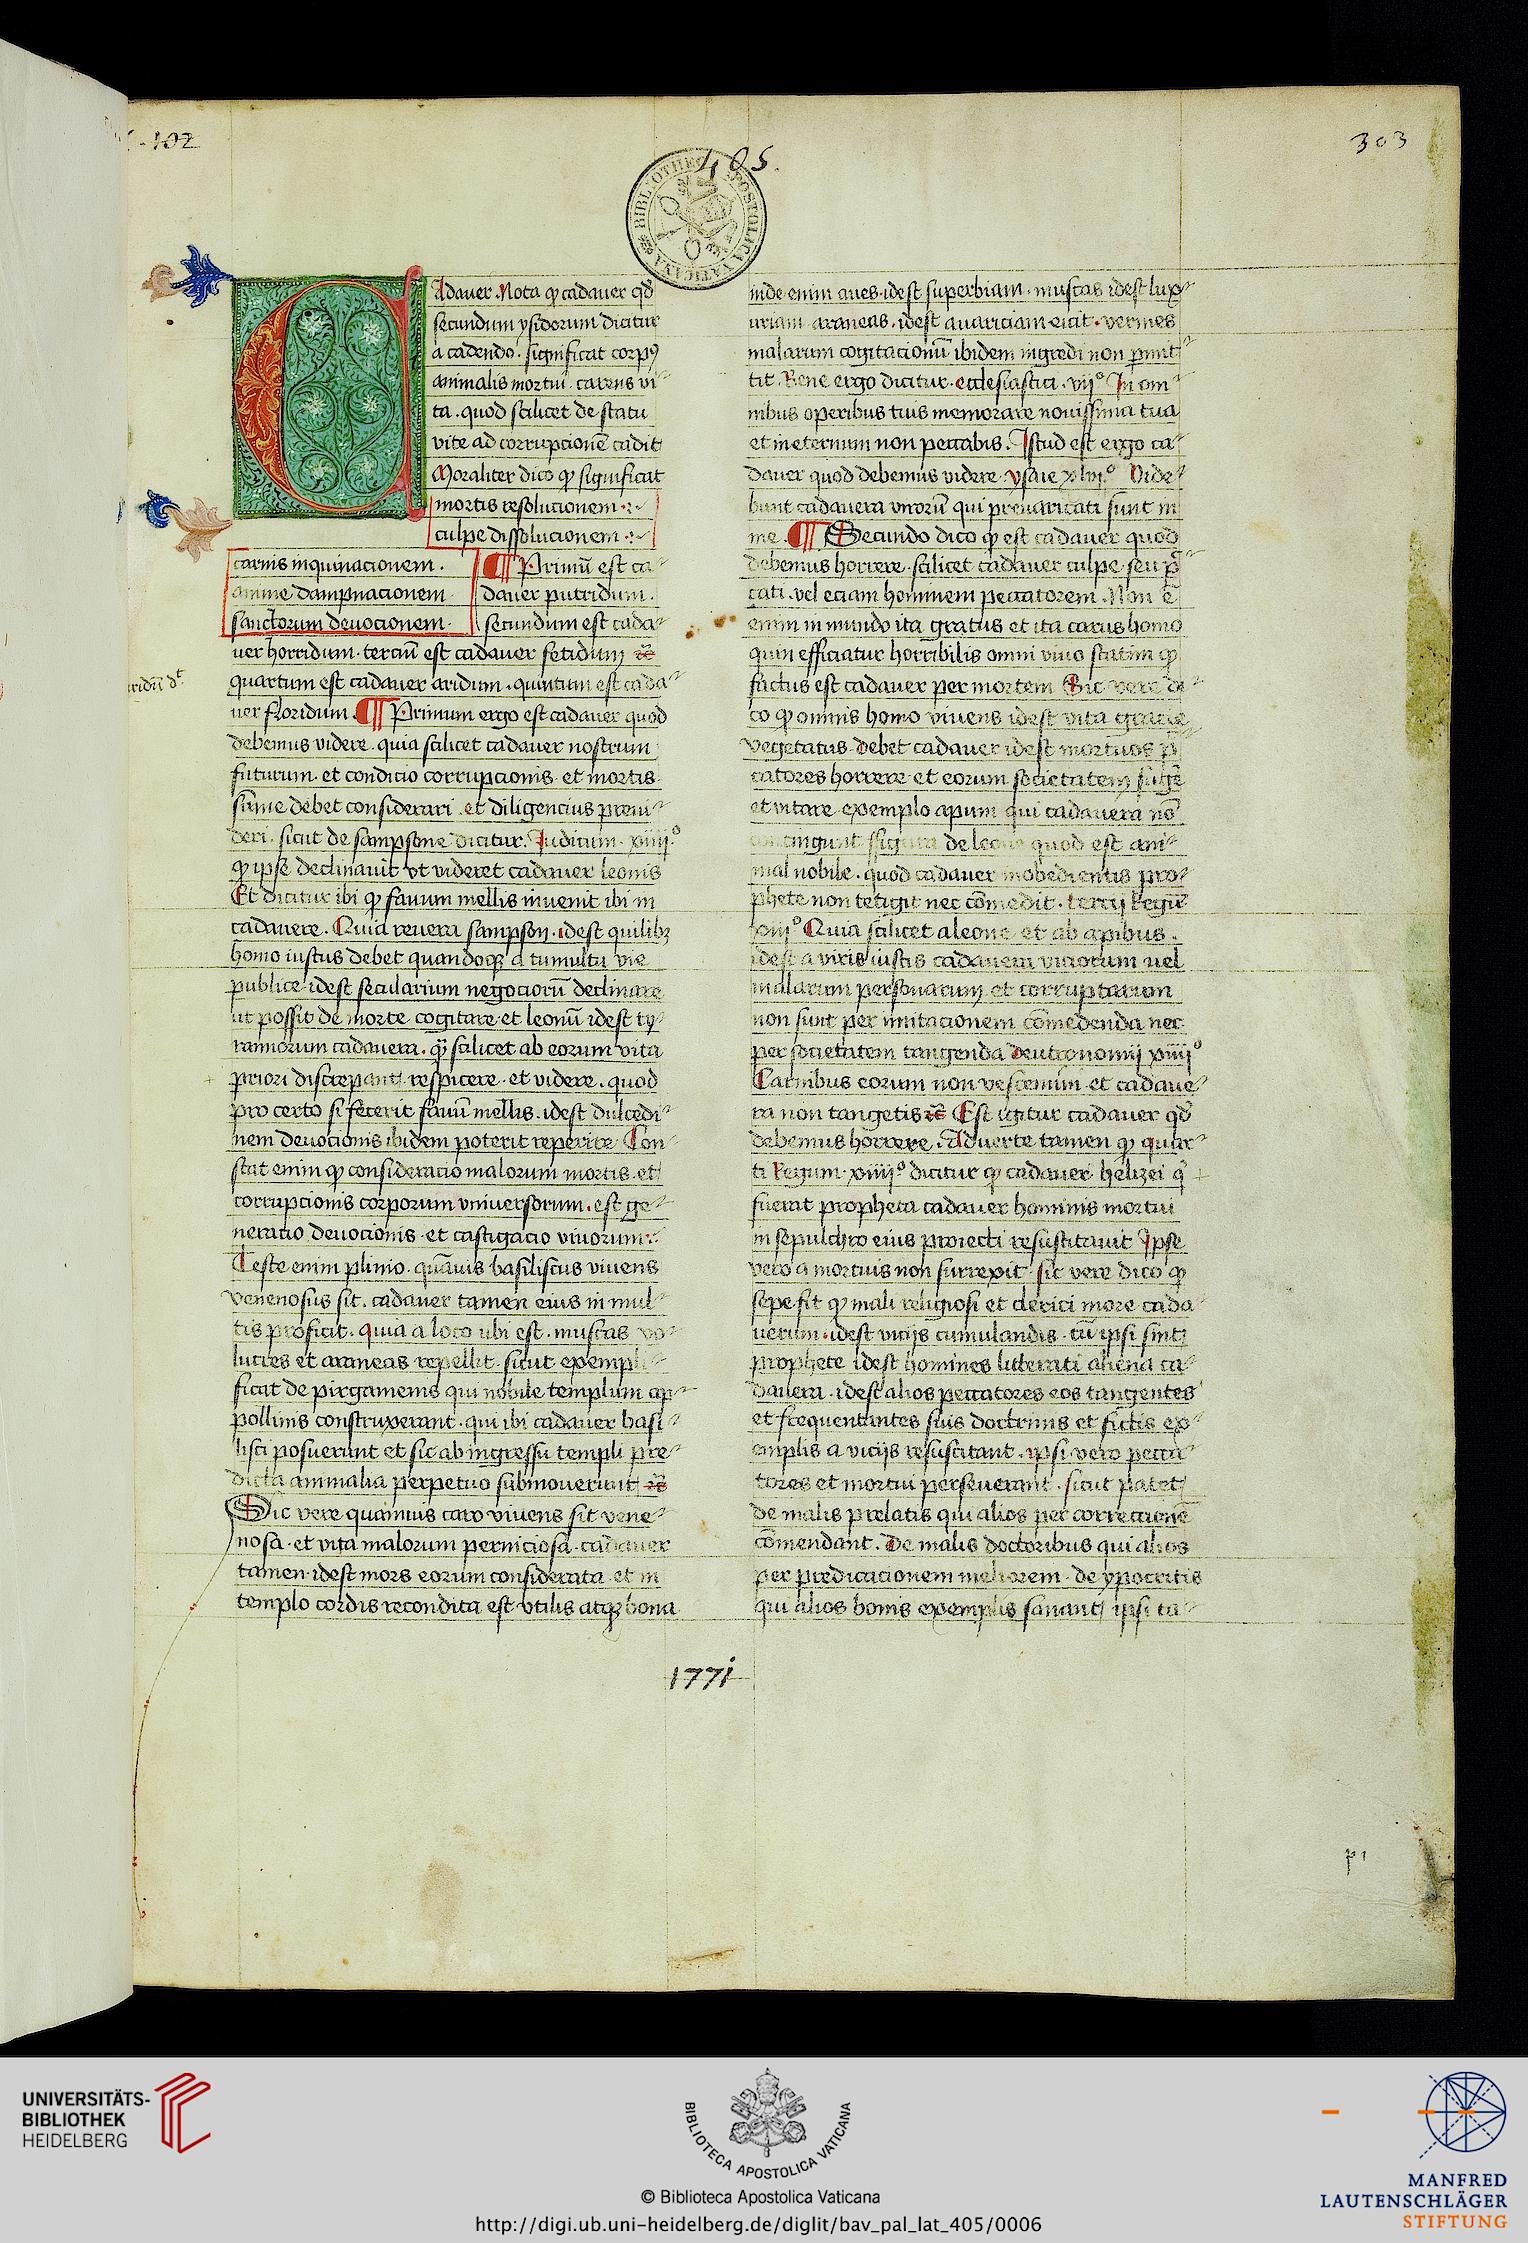 C-102
303
405.
BIBLIOTHECA APOSTOLICA VATICANA
CAdauer. Nota ꝙ cadauer qd̄
secundum ysidorum dicitur
a cadendo. significat corpꝰ
animalis mortui. carens vi
ta. quod scilicet de statu
vite ad corrupcionē cadit
Moraliter dico ꝙ significat
mortis resolucionem.
culpe dissolucionem.
carnis inquinacionem.
anime dampnacionem.
sanctorum deuocionem.
¶ Primū est ca
dauer putridum.
secundum est cada
uer horridum. terciū est cadauer fetidum
quartum est cadauer aridum. quintum est cada
uer floridum. ¶ Primum ergo est cadauer quod
debemus videre. quia scilicet cadauer nostrum
futurum. et condicio corrupcionis. et mortis.
sūme debet considerari. et diligencius preui
deri. sicut de sampsone dicitur. Judicum. xiiii.º
ꝙ ipse declinauit vt videret cadauer leonis
Et dicitur ibi ꝙ fauum mellis inuenit ibi in
cadauere. Quia reuera sampson. idest quilibꝫ
homo iustus debet quandoqꝫ a tumultu vie
publice idest secularium negociorū declinare
ut possit de morte cogitare et leonū idest ty
rannorum cadauera. scilicet ab eorum vita
priori discrepant respicere. et videre. quod
pro certo si fecerit fauū mellis. idest dulcedi
nem deuocionis ibidem poterit reperire. Con
stat enim ꝙ consideracio malorum mortis. et
corrupcionis corporum vniuersorum. est ge
neratio deuocionis. et castigacio viuorum.
Teste enim plinio. quāuis basiliscus viuens
venenosus sit. cadauer tamen eius in mul
tis proficit. quia a loco ubi est. muscas vo
lucres et araneas repellit. sicut exempli
ficat de pirgamenis qui nobile templum ap
pollinis construxerant. qui ibi cadauer basi
lisci posuerunt et sic ab ingressu templi pre
dicta animalia perpetuo submouerunt
Sic vere quamuis caro viuens sit vene
nosa. et vita malorum perniciosa. cadauer
tamen. idest mors eorum considerata. et in
templo cordis recondita est. vtilis atqꝫ bona
inde enim aues. idest superbiam. muscas idest lux
uriam araneas. idest auariciam eicit. vermes
malarum cogitacionū ibidem ingredi non permit
tit. Bene ergo dicitur. ecclesiastici. vii.º In om
nibus operibus tuis memorare nouissima tua
et in eternum non peccabis. Istud est ergo ca
dauer quod debemus videre. ysaie Vide
bunt cadauera virorū qui preuaricati sunt in
me. ¶ Secundo dico ꝙ est cadauer quod
debemus horrere. scilicet cadauer culpe seu pec
cati. vel eciam hominem peccatorem. Non ē
enim in mundo ita gratus et ita carus homo
quin efficiatur horribilis omni viuo statim ꝙ
factus est cadauer per mortem Sic vere di
co ꝙ omnis homo viuens idest vita gracie
vegetatus. debet cadauer idest mortuos pec
catores horrere. et eorum societatem fugē
et vitare. exemplo apum qui cadauera nō
contingunt. figura de leone quod est ani
mal nobile. quod cadauer inobedientis pro
phete non tetigit nec cōmedit. tercij Regū
xiii.º Quia scilicet a leone et ab apibus.
idest a viris iustis cadauera viciorum uel
malarum personarum et corruptarum
non sunt per imitacionem cōmedenda nec
per societatem tangenda deutronomij xiiii.º
Carnibus eorum non vescemini et cadaue
ra non tangetis Est igitur cadauer qd̄
debemus horrere. Aduerte tamen ꝙ quar
ti Regum. xiiii.º dicitur ꝙ cadauer helizei
fuerat propheta cadauer hominis mortui
in sepulchro eius proiecti resuscitauit Ipse
vero a mortuis non surrexit. sic vere dico ꝙ
sepe fit ꝙ mali religiosi et clerici more cada
uerum. idest vicijs cumulandis. tū ipsi sint
prophete idest homines litterati aliena ca
dauera. idest alios peccatores eos tangentes
et frequentantes suis doctrinis et fictis ex
emplis a vicijs resuscitant. ipsi vero pecca
tores et mortui perseuerant. sicut patet
de malis prelatis qui alios per correctionē
cōmendant. De malis doctoribus qui alios
per predicacionem meliorem. de ypocritis
qui alios bonis exemplis sanant ipsi ta
1771
UNIVERSITÄTS-
BIBLIOTHEK
HEIDELBERG
BIBLIOTECA APOSTOLICA VATICANA
© Biblioteca Apostolica Vaticana
http://digi.ub.uni-heidelberg.de/diglit/bav_pal_lat_405/0006
MANFRED
LAUTENSCHLÄGER
STIFTUNG